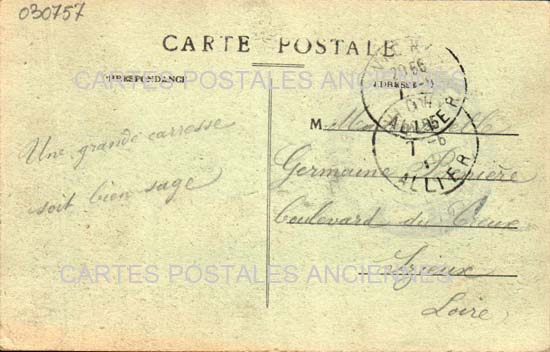 030757
CARTE POSTALE
CORRESPONDANCE
ADRESSE
CARTES POSTALES ANCIENNES
Une grande carresse
soit bien sage
M Mademoiselle
Germaine
boulevard du Creux
Izieux
Loire
ALLIER
ALLIER
CARTES POSTALES ANCIENNES